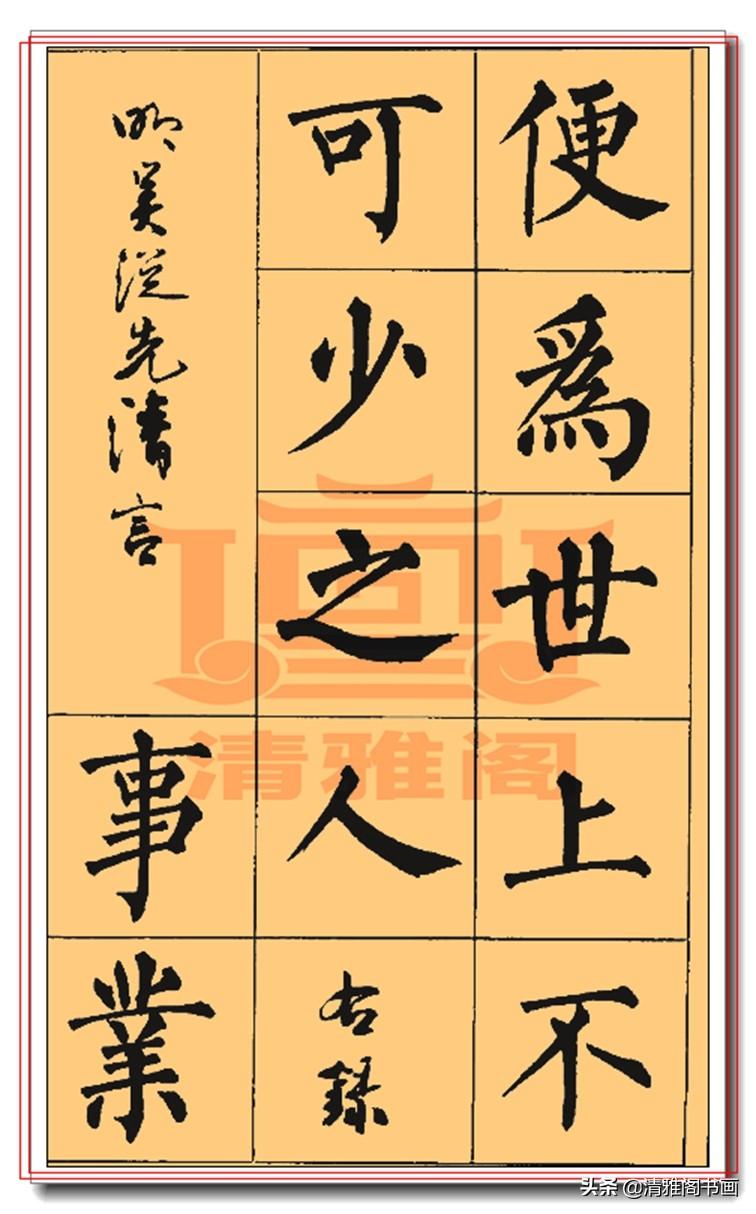 便爲世上不
可少之人右録
明吴從先清言
事業
清雅阁
头条 @清雅阁书画